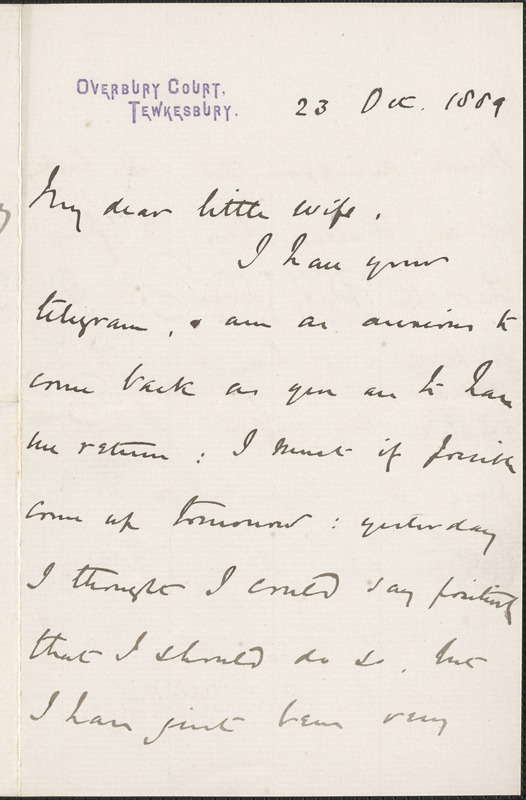 OVERBURY COURT,
TEWKESBURY.
23 Dec. 1889
My dear little wife,
I have your
telegram, & am as anxious to
come back as you are to have
me return: I must if possible
come up tomorrow: yesterday
I thought I could say positively
that I should do so, but
I have just been very